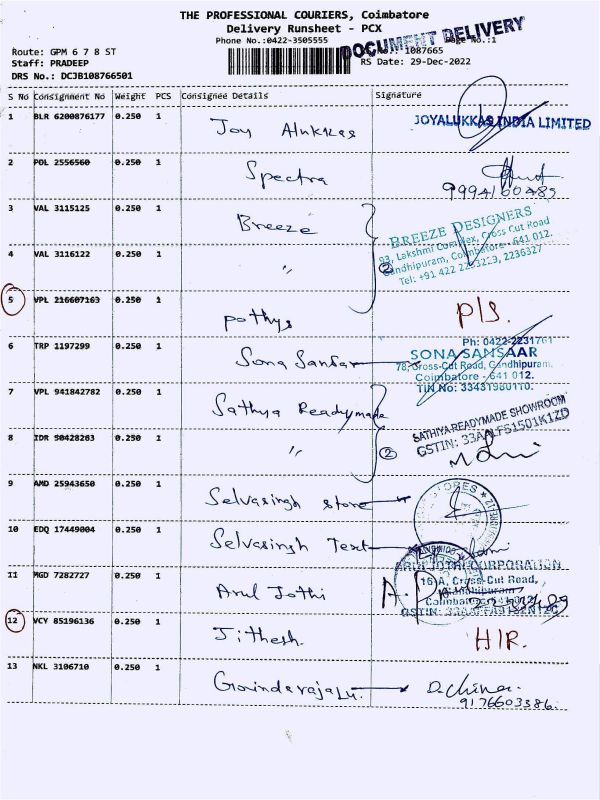 THE PROFESSIONAL COURIERS, Coimbatore
Delivery Runsheet - PCX
Phone No.:0422-3505555
DOCUMENT DELIVERY
Page No.:1
Route: GPM 6 7 8 ST
1087665
Staff: PRADEEP
RS Date: 29-Dec-2022
DRS No.: DCJB108766501
S No Consignment No Weight PCS Consignee Details Signature
1 BLR 6200876177 0.250 1 Joy Alukkas JOYALUKKAS INDIA LIMITED
2 POL 2556560 0.250 1 Spectra
9994160489
3 VAL 3115125 0.250 1 Breeze BREEZE DESIGNERS
93, Lakshmi Complex, Cross Cut Road
4 VAL 3116122 0.250 1 〃 2 Gandhipuram, Coimbatore - 641 012.
Tel: +91 422 2233213, 2236327
5 VPL 216607163 0.250 1 pothys P/S.
Ph: 0422-2231761
6 TRP 1197299 0.250 1 Sona Sansar SONA SANSAAR
78, Cross-Cut Road, Gandhipuram.
Coimbatore - 641 012.
TIN No: 33431980110.
7 VPL 941842782 0.250 1 Sathya Readymade SATHIYA READYMADE SHOWROOM
GSTIN: 33AALFS1501K1ZD
8 IDR 50428283 0.250 1 〃 2
9 AMD 25943650 0.250 1 Selvasingh store
10 EDQ 17449004 0.250 1 Selvasingh Text
ARUL JOTHI CORPORATION
11 MGD 7282727 0.250 1 Arul Jothi 16-A, Cross-Cut Road,
Gandhipuram
Coimbatore
GSTIN:
12 VCY 85196136 0.250 1 Jithesh. H/R.
13 NKL 3106710 0.250 1 Govindarajalu. D. Chinna.
9176603386.